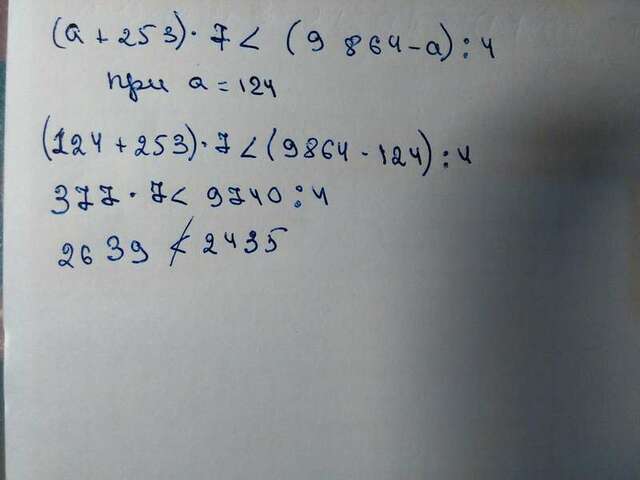 (a + 253) · 7 < (9 864 - a) : 4
при a = 124
(124 + 253) · 7 < (9864 - 124) : 4
377 · 7 < 9740 : 4
2639 ≮ 2435